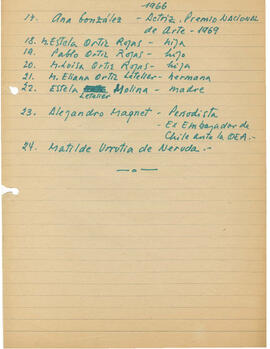 1966
17. Ana González - Actriz, Premio Nacional
de Arte - 1969
18. M. Estela Ortiz Rojas - hija
19. Pablo Ortiz Rojas - hijo
20. M. Luisa Ortiz Rojas - hija
21. M. Eliana Ortiz Letelier - hermana
22. Estela Molina - madre
Letelier
23. Alejandro Magnet - Periodista
- Ex Embajador de
Chile ante la OEA.-
24. Matilde Urrutia de Neruda.-